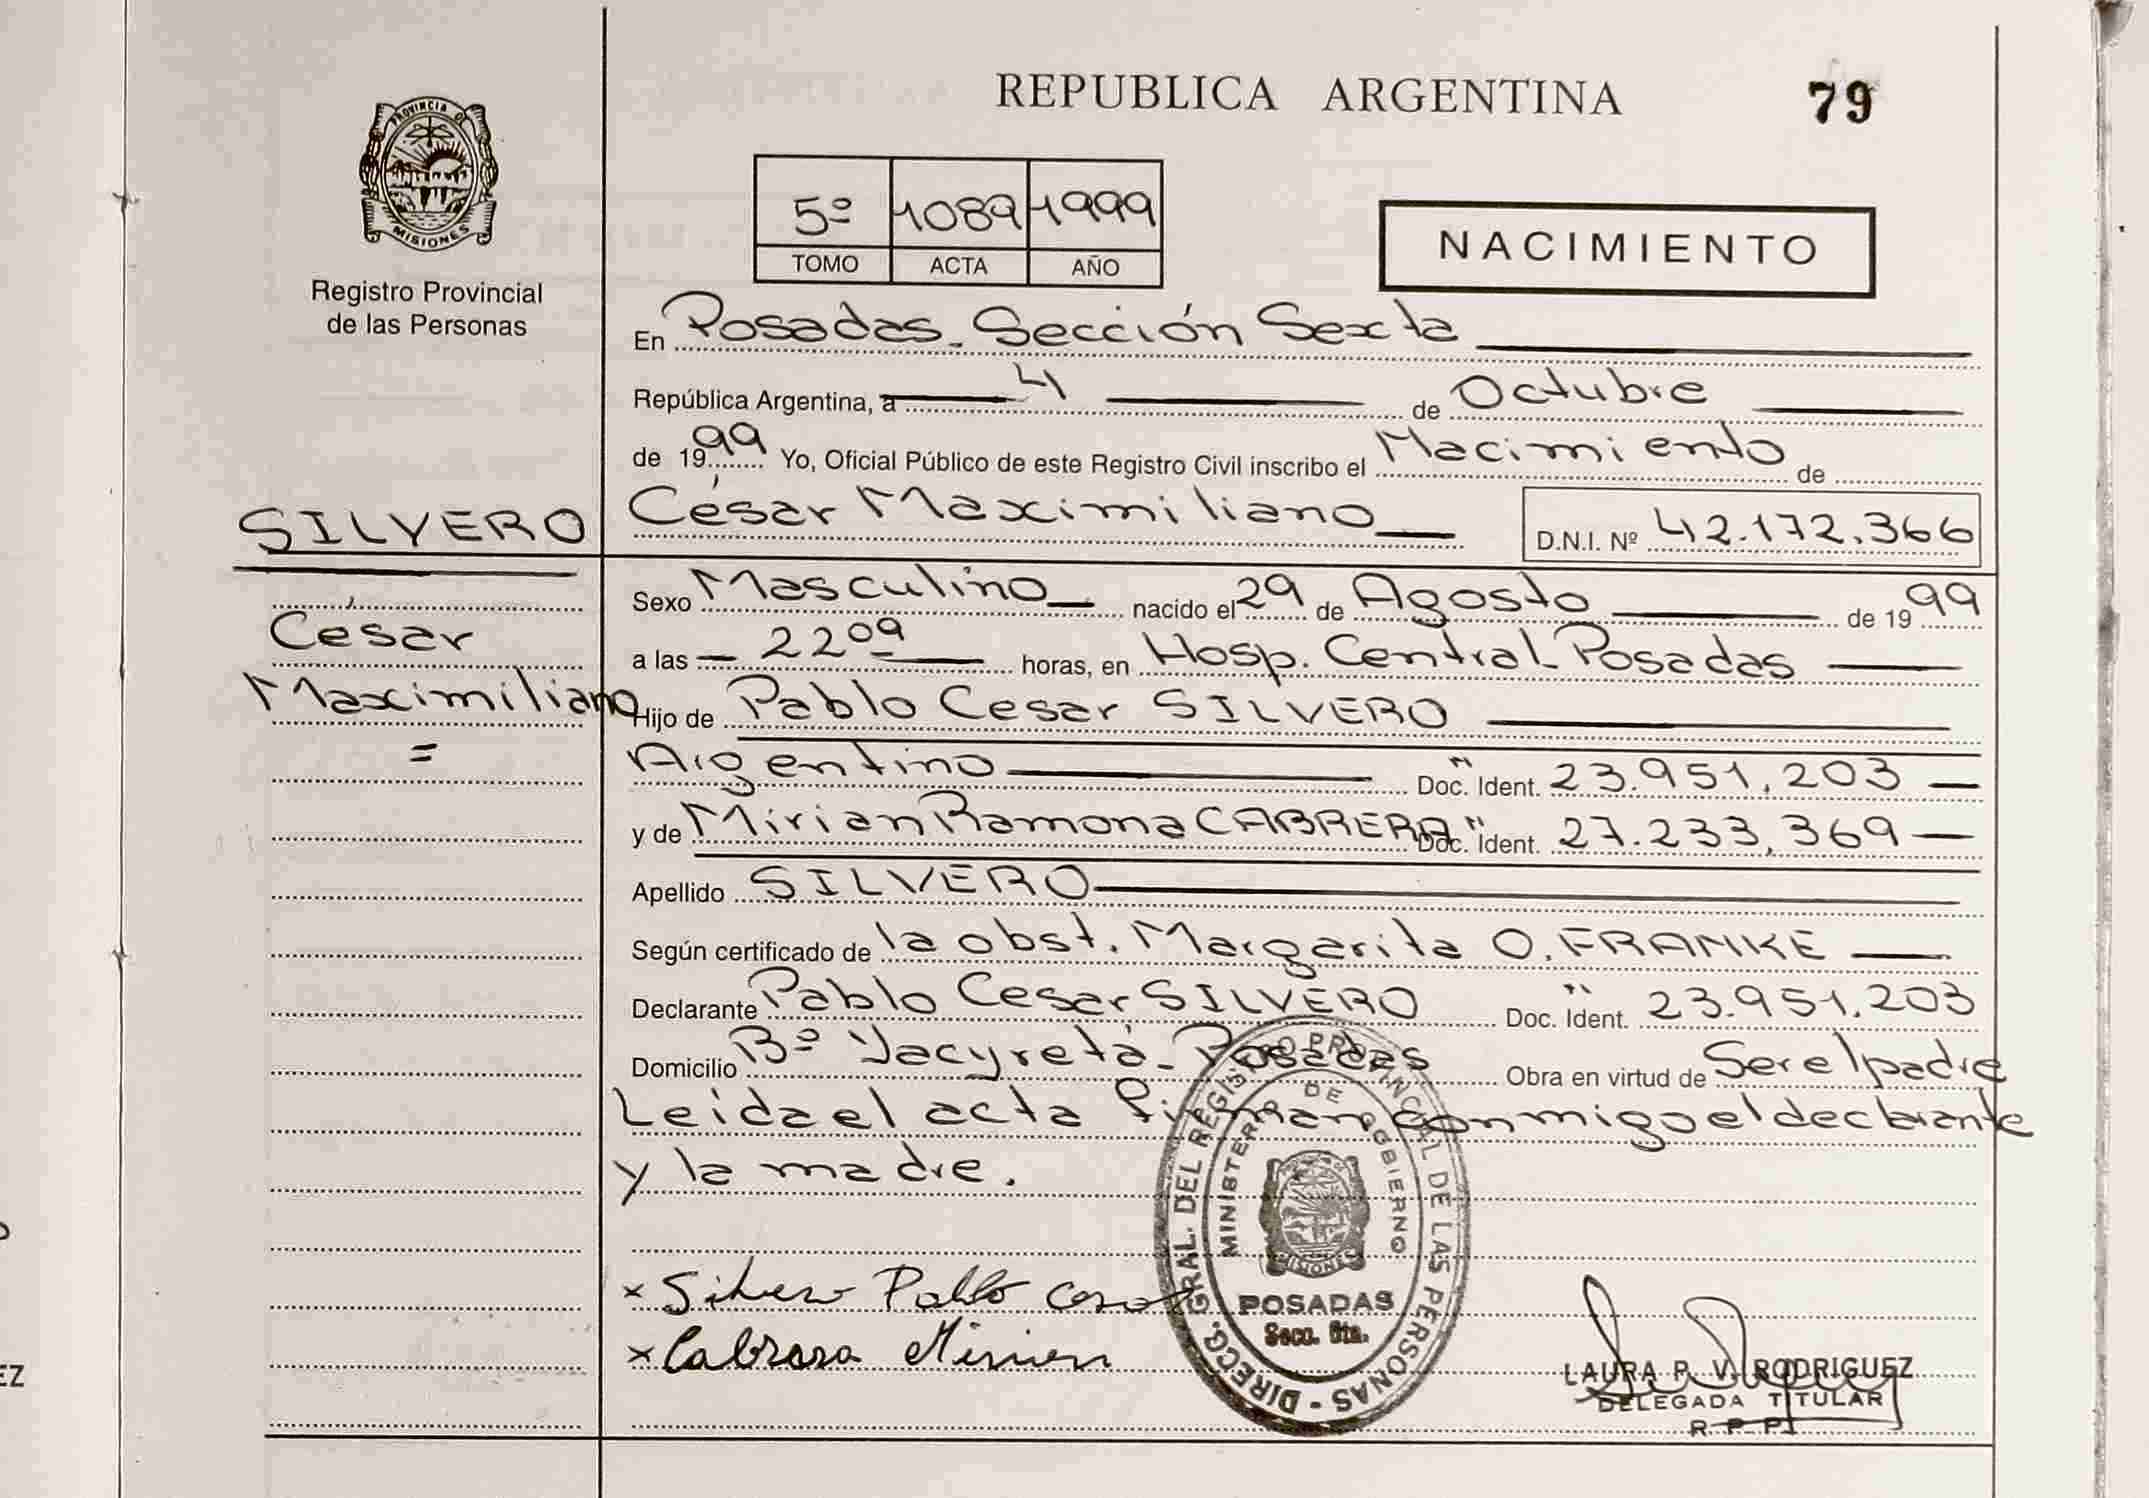 REPUBLICA ARGENTINA
79
PROVINCIA DE
MISIONES
Registro Provincial
de las Personas
5º 1089 1999
TOMO ACTA AÑO
NACIMIENTO
En Posadas. Sección Sexta
República Argentina, a 4 de Octubre
de 1999 Yo, Oficial Público de este Registro Civil inscribo el Nacimiento de
SILVERO
César Maximiliano D.N.I. Nº 42.172.366
César
Maximiliano
=
Sexo Masculino nacido el 29 de Agosto de 1999
a las 22 09 horas, en Hosp. Central Posadas
Hijo de Pablo Cesar SILVERO
Argentino Doc. Ident. 23.951.203
y de Mirian Ramona CABRERA Doc. Ident. 27.233.369
Apellido SILVERO
Según certificado de la obst. Margarita O. FRANKE
Declarante Pablo Cesar SILVERO Doc. Ident. 23.951.203
Domicilio Bº Yacyretá - Posadas Obra en virtud de Ser el padre
Leida el acta firman conmigo el declarante
y la madre.
x Silvero Pablo Cesar
x Cabrera Mirian
DIRECC. GRAL. DEL REGISTRO PROVINCIAL DE LAS PERSONAS -
MINISTERIO DE GOBIERNO
MISIONES
POSADAS
Secc. 6ta.
LAURA R. V. RODRIGUEZ
DELEGADA TITULAR
R. P. P.
EZ